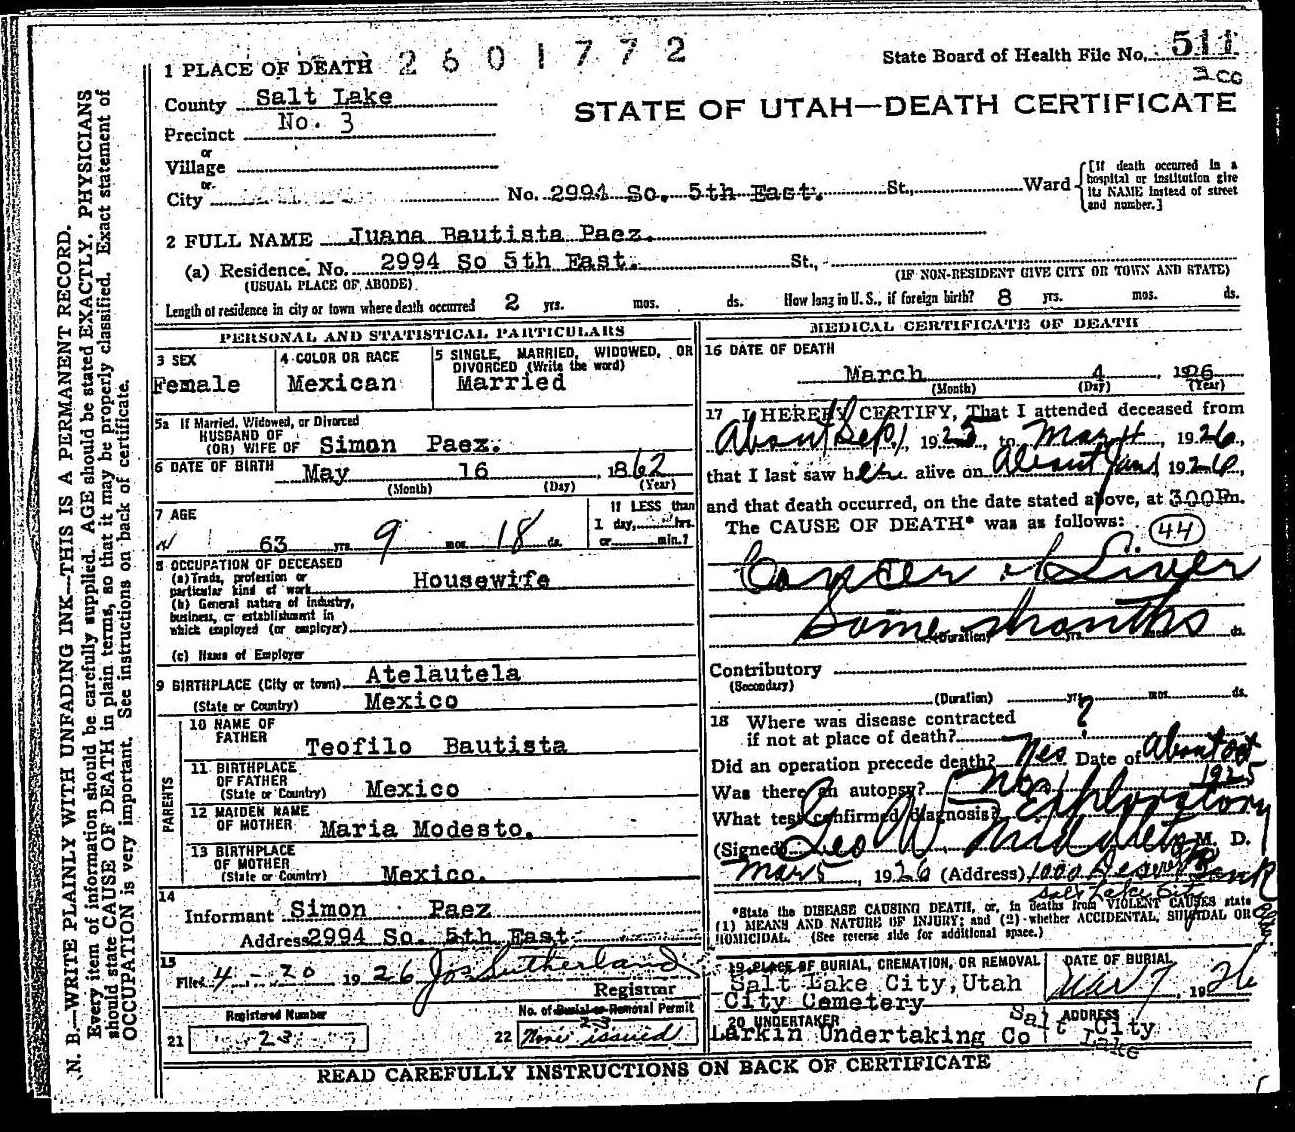 2601772
State Board of Health File No. 511
3 CC
1 PLACE OF DEATH
County Salt Lake
STATE OF UTAH—DEATH CERTIFICATE
Precinct No. 3
or
Village
or
City No. 2994 So. 5th East. St., Ward
[If death occurred in a hospital or institution give its NAME instead of street and number.]
2 FULL NAME Juana Bautista Paez.
(a) Residence. No. 2994 So 5th East. St.,
(USUAL PLACE OF ABODE) (IF NON-RESIDENT GIVE CITY OR TOWN AND STATE)
Length of residence in city or town where death occurred 2 yrs. mos. ds. How long in U. S., if foreign birth? 8 yrs. mos. ds.
PERSONAL AND STATISTICAL PARTICULARS
3 SEX
Female
4 COLOR OR RACE
Mexican
5 SINGLE, MARRIED, WIDOWED, OR DIVORCED (Write the word)
Married
5a If Married, Widowed, or Divorced
HUSBAND OF
(OR) WIFE OF Simon Paez.
6 DATE OF BIRTH
May 16, 1862
(Month) (Day) (Year)
7 AGE
63 yrs. 9 mos. 18 ds.
If LESS than
1 day, hrs.
or min.?
8 OCCUPATION OF DECEASED
(a) Trade, profession or
particular kind of work Housewife
(b) General nature of industry,
business, or establishment in
which employed (or employer)
(c) Name of Employer
9 BIRTHPLACE (City or town) Atelautela
(State or Country) Mexico
PARENTS
10 NAME OF
FATHER Teofilo Bautista
11 BIRTHPLACE
OF FATHER
(State or Country) Mexico
12 MAIDEN NAME
OF MOTHER Maria Modesto.
13 BIRTHPLACE
OF MOTHER
(State or Country) Mexico.
14
Informant Simon Paez
Address 2994 So. 5th East
15
Filed 4-20 1926 Jos Sutherland
Registrar
Registered Number
21 23
No. of Burial or Removal Permit
22 None issued
MEDICAL CERTIFICATE OF DEATH
16 DATE OF DEATH
March 4, 1926
(Month) (Day) (Year)
17 I HEREBY CERTIFY, That I attended deceased from
About Sep 1, 1925, to Mar 4, 1926,
that I last saw her alive on About Jan 1 1926,
and that death occurred, on the date stated above, at 3:00 P.m.
The CAUSE OF DEATH* was as follows: 44
Cancer of Liver
Some months
(Duration) yrs. mos. ds.
Contributory
(Secondary)
(Duration) yrs. mos. ds.
18 Where was disease contracted
if not at place of death? ?
Did an operation precede death? Yes Date of About Oct 1925
Was there an autopsy? No
What test confirmed diagnosis? Exploratory
(Signed) Geo W Middleton M. D.
Mar 5, 1926 (Address) 1000 Deseret Bank Bldg
Salt Lake City
*State the DISEASE CAUSING DEATH, or, in deaths from VIOLENT CAUSES state
(1) MEANS AND NATURE OF INJURY; and (2) whether ACCIDENTAL, SUICIDAL OR
HOMICIDAL. (See reverse side for additional space.)
19 PLACE OF BURIAL, CREMATION, OR REMOVAL
Salt Lake City, Utah
City Cemetery
DATE OF BURIAL
Mar 7, 1926
20 UNDERTAKER
Larkin Undertaking Co
ADDRESS
Salt Lake City
READ CAREFULLY INSTRUCTIONS ON BACK OF CERTIFICATE
N. B.—WRITE PLAINLY WITH UNFADING INK—THIS IS A PERMANENT RECORD.
Every item of information should be carefully supplied. AGE should be stated EXACTLY. PHYSICIANS
should state CAUSE OF DEATH in plain terms, so that it may be properly classified. Exact statement of
OCCUPATION is very important. See instructions on back of certificate.